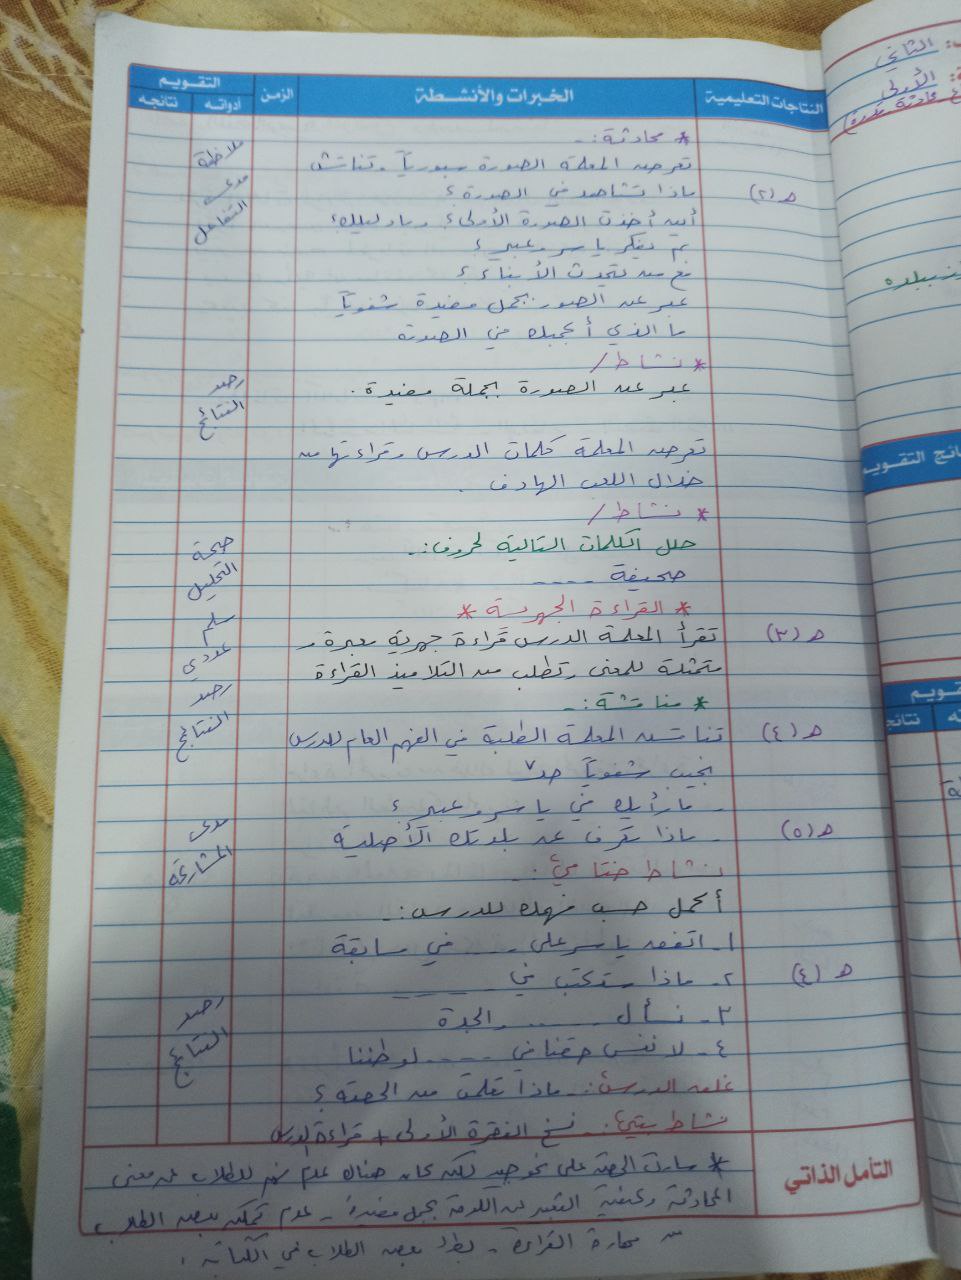 النتاجات التعليمية
الخبرات والأنشطة
الزمن
التقويم
أدواته
نتائجه
* محادثة :-
تعرض المعلمة الصورة سبورياً وتناقش
ملاحظة
هـ (٢)
ماذا تشاهد في الصورة ؟
مدى
أين أخذت الصورة الأولى ؟ وما دليلك ؟
التفاعل
بم يفكر ياسر وعبير ؟
مع من يتحدث الأبناء ؟
عبر عن الصور بجمل مفيدة شفوياً
ما الذي أعجبك في الصورة
* نشاط /
عبر عن الصورة بجملة مفيدة .
رصد
النتائج
تعرض المعلمة كلمات الدرس وقراءتها من
خلال اللعب الهادف .
* نشاط /
حلل الكلمات التالية لحروف :-
صحة
صحيفة ----
التحليل
* القراءة الجهرية *
سلم
هـ (٣)
تقرأ المعلمة الدرس قراءة جهرية معبرة و
عددي
متمثلة للمعنى وتطلب من التلاميذ القراءة
رصد
* مناقشة :-
النتائج
هـ (٤)
تناقش المعلمة الطلبة في الفهم العام للدرس
نجيب شفوياً صـ٧
- ما رأيك في ياسر وعبير ؟
هـ (٥)
- ماذا تعرف عن بلدتك الأصلية
مدى
المشاركة
نشاط ختامي :-
أكمل حسب فهمك للدرس :-
١- اتفق ياسر على ---- في سابقة
هـ (٤)
٢- ماذا ستكتب في ----
٣- نسأل ---- والجدة
رصد
٤- لا ننس حقنا في ---- لوطننا
النتائج
غلق الدرس :- ماذا تعلمت من الحصة ؟
نشاط بيتي :- نسخ الفقرة الأولى + قراءة الدرس
التأمل الذاتي
* سارت الحصة على نحو جيد لكن كان هناك عدم فهم للطلاب عن معنى
المحادثة وكيفية التعبير عن اللوحة بجمل مفيدة - عدم تمكن بعض الطلاب
من مهارة القراءة - بطء بعض الطلاب في الكتابة .
الثاني
الأولى
نتائج التقويم
التقويم